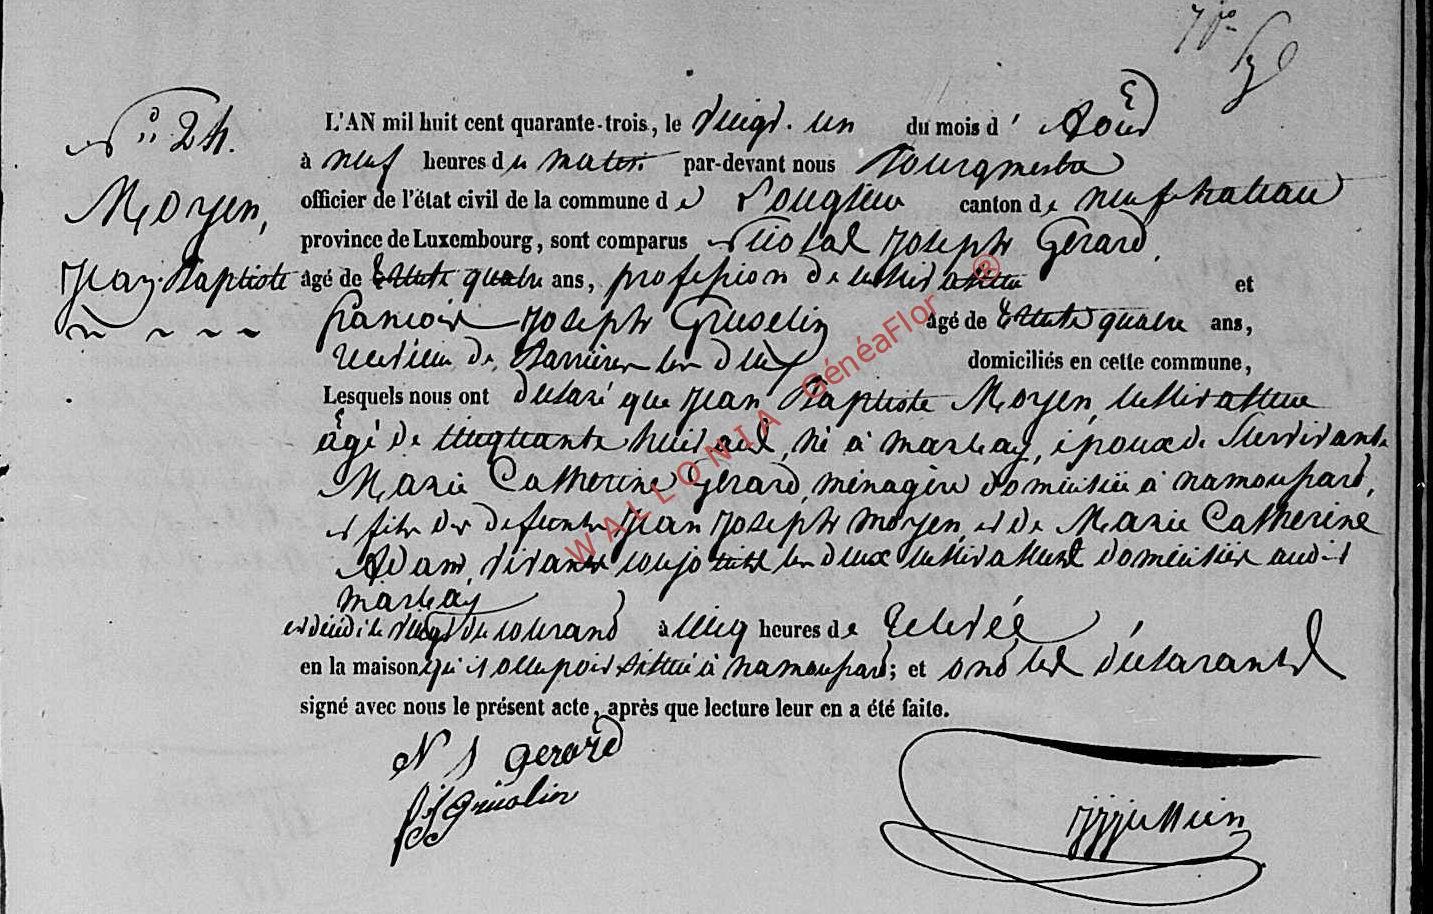 N° 24.
Moyen,
Jean-Baptiste
L'AN mil huit cent quarante-trois, le vingt-un du mois d' Août
à neuf heures du matin par-devant nous Bourgmestre
officier de l'état civil de la commune de Longlier canton de neufchateau
province de Luxembourg, sont comparus Nicolas Joseph Gérard,
âgé de trente quatre ans, profession de cultivateur et
françois Joseph Gruselin âgé de trente quatre ans,
receveur de Barrière les deux domiciliés en cette commune,
Lesquels nous ont déclaré que Jean Baptiste Moyen, cultivateur
âgé de cinquante huit ans, né à marbay, époux de Survivante
Marie Catherine Gérard, ménagère domiciliée à namoussard,
et fils des défunts Jean Joseph moyen, et de Marie Catherine
Adam, vivants conjoints les deux cultivateurs domiciliés audit
marbay
est décédé le vingt du courant à cinq heures de relevée
en la maison qu'il occupoit située à namoussard; et ont les déclarants
signé avec nous le présent acte, après que lecture leur en a été faite.
N J Gerard
f J Gruselin
WALLONIA GénéaFlor ®